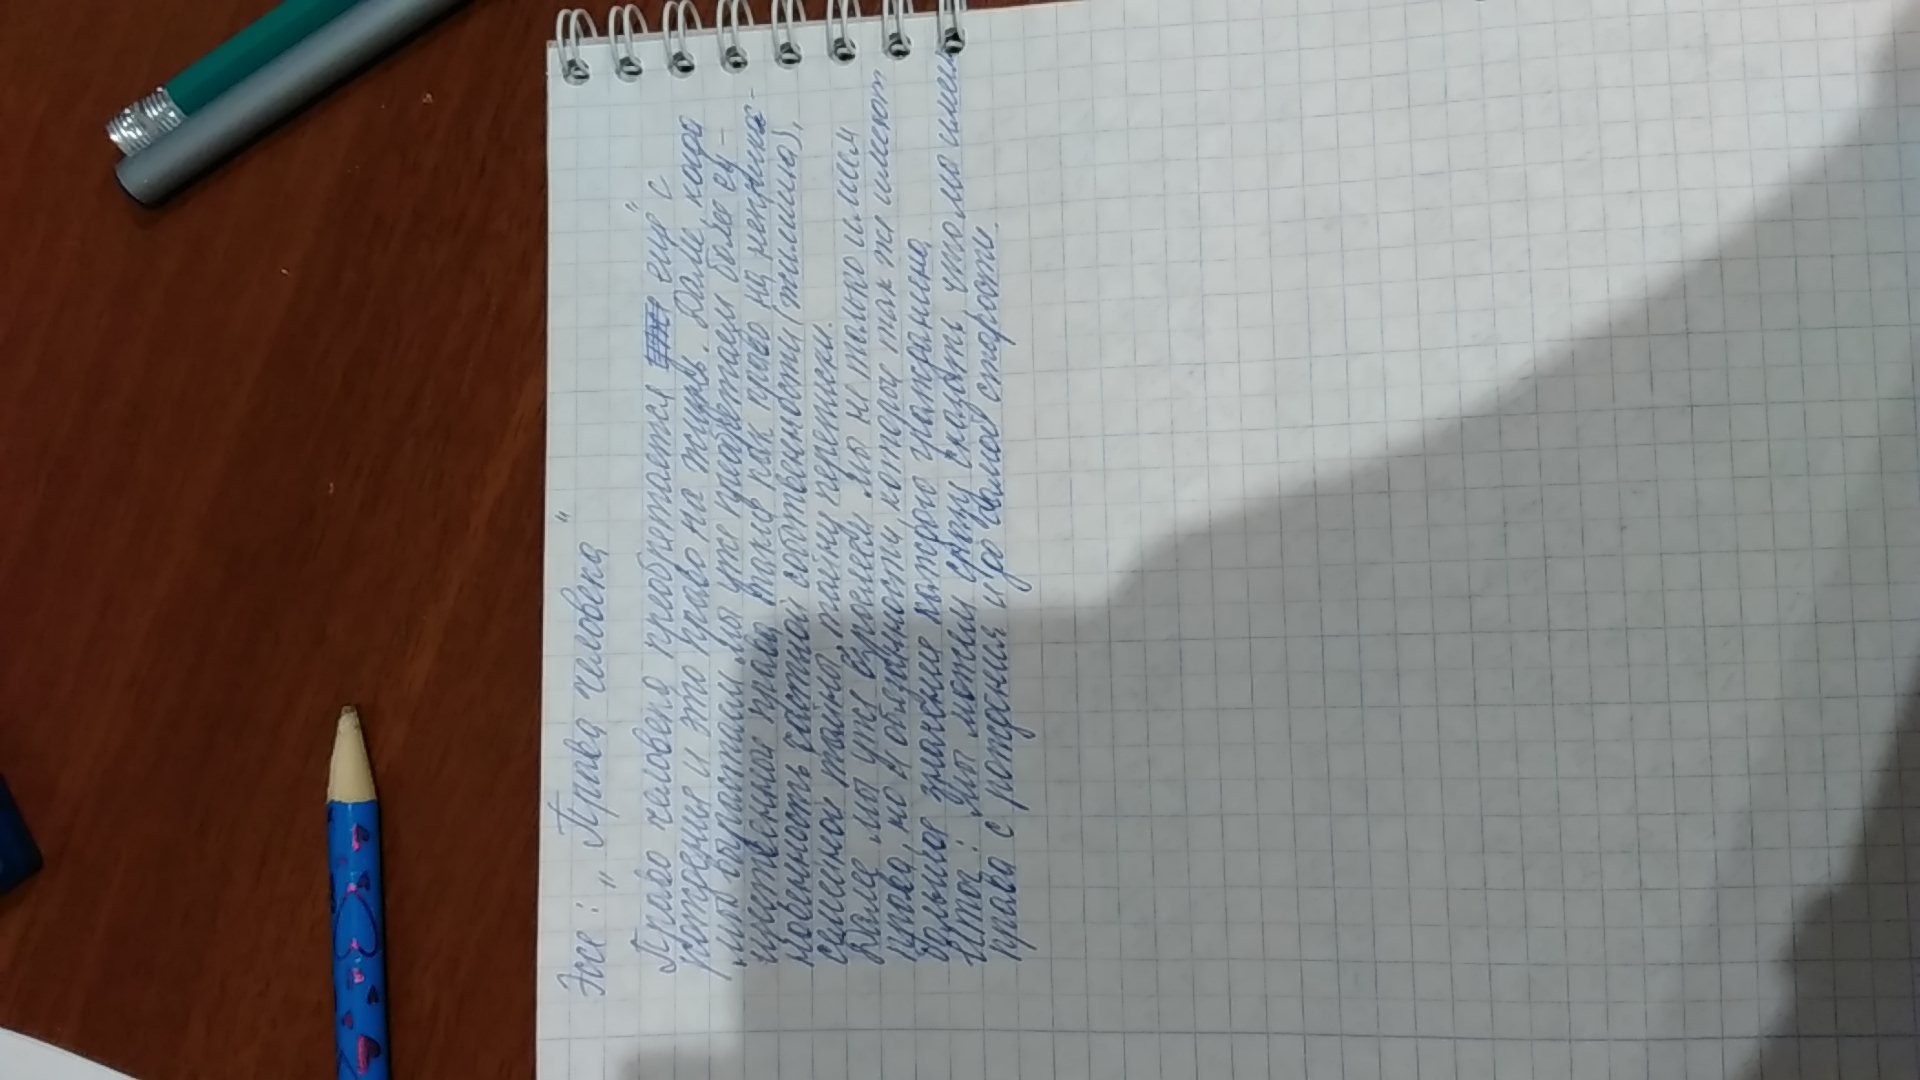 Эссе: "Права человека"
Право человека преобретается ещё с
рождения и это право на жизнь. Дале когда
мы выростаем мы уже преобретаем более су-
щественное право такие как право на неприкос-
новенность частной собственности (жилища),
семейной тайно, тайну переписки.
Дале мы уже взрослеем мы не только имеем
права, но и обязанности которые так же имеют
большое значение которого
Итог: мы можем сказать что мы имеем
права с рождения и до самой старости.